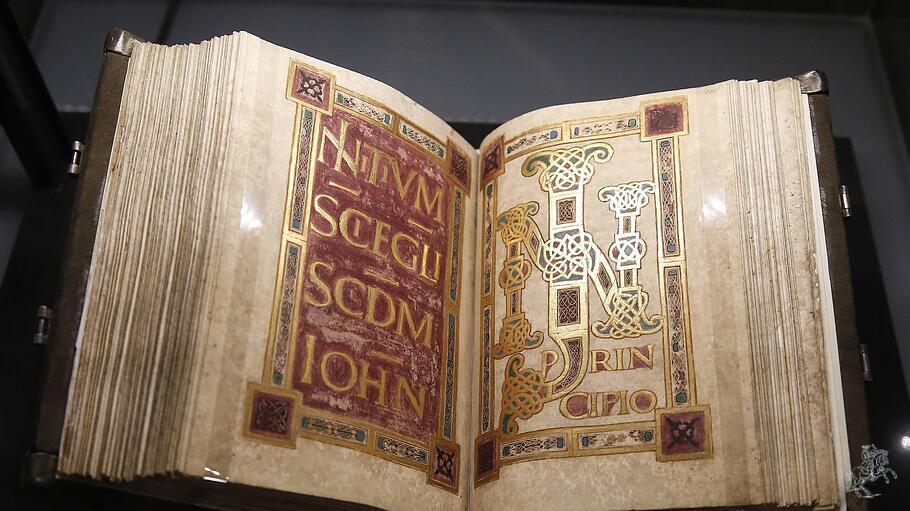 INITIVM
SCI EGLI
SCDM
IOHN
IN
PRIN
CIPIO